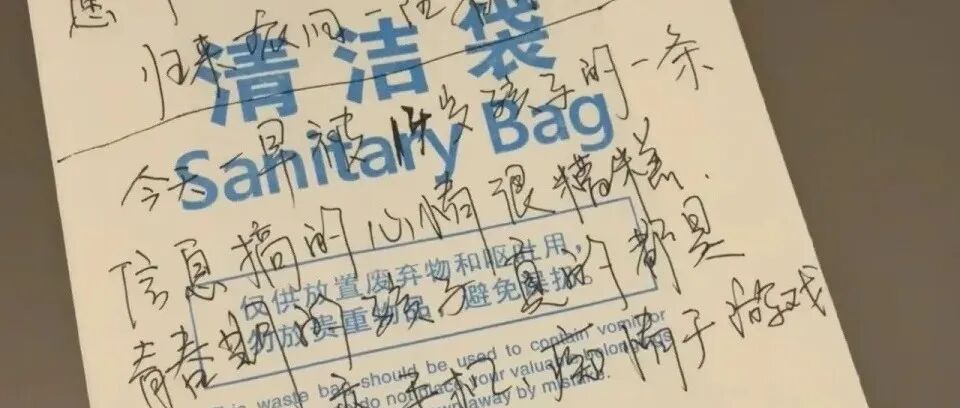 归来
清洁袋
今天一早被14岁孩子的一条
Sanitary Bag
信息搞的心情很糟糕.
仅供放置废弃物和呕吐用,
青春期的孩子真的都是
勿放贵重物品,避免误投。
waste bag should be used to contain vomit or
手机、痴情于游戏
do not place your valuable belongings
away by mistake.